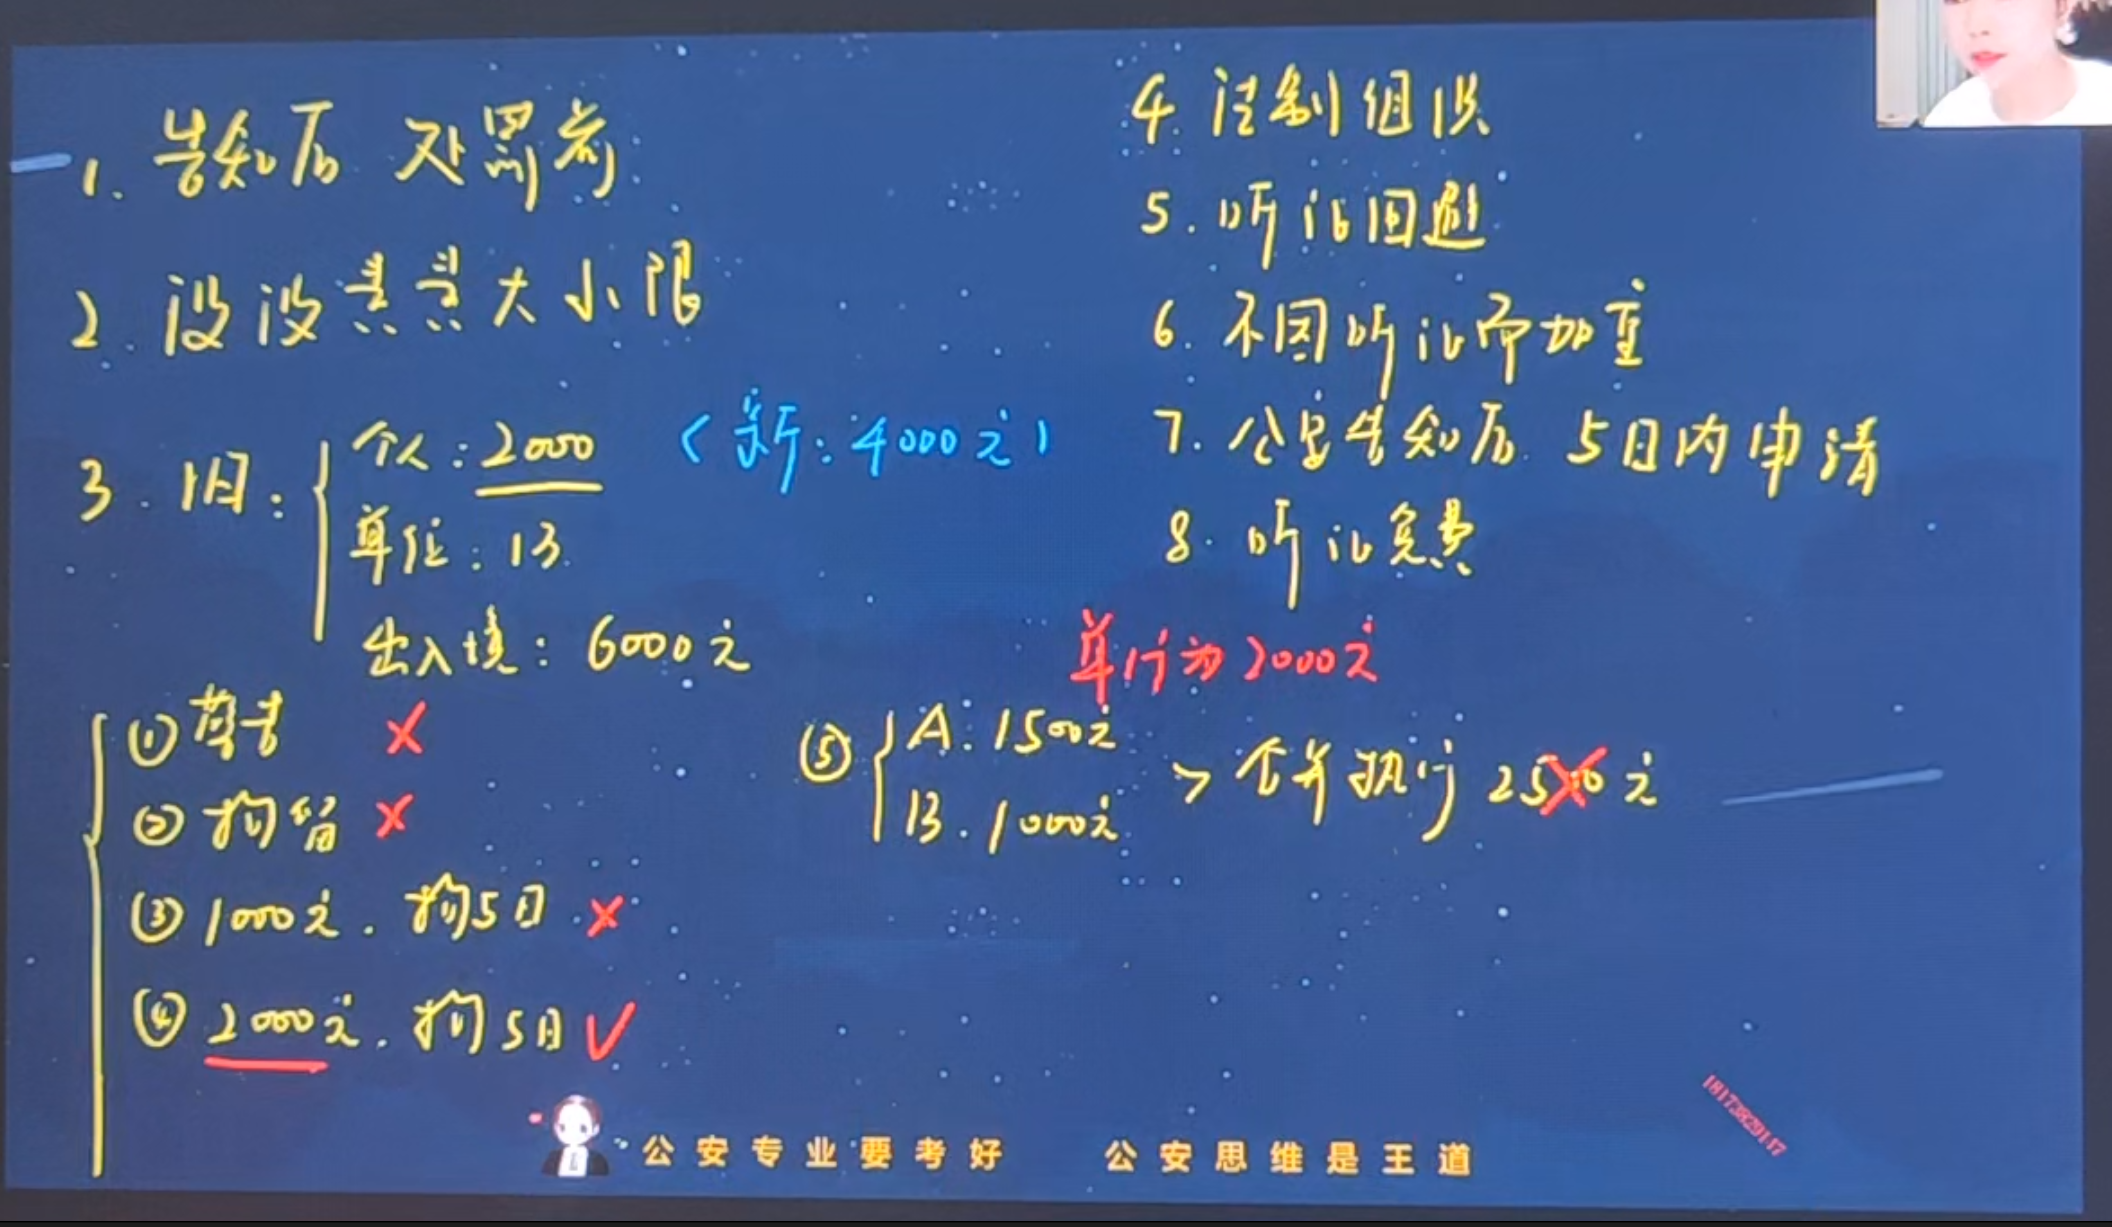 1. 告知后 处罚前
2. 没没吊吊大小限
3. 旧：
个人：2000 （新：4000元）
单位：1万
出入境：6000元
① 警告 ×
② 拘留 ×
③ 1000元. 拘5日 ×
④ 2000元. 拘5日 ✓
4. 法制组织
5. 听证回避
6. 不因听证而加重
7. 公安告知后 5日内申请
8. 听证免费
单行为2000元
⑤ A. 1500元
B. 1000元
> 合并执行 2500元
公安专业要考好 公安思维是王道